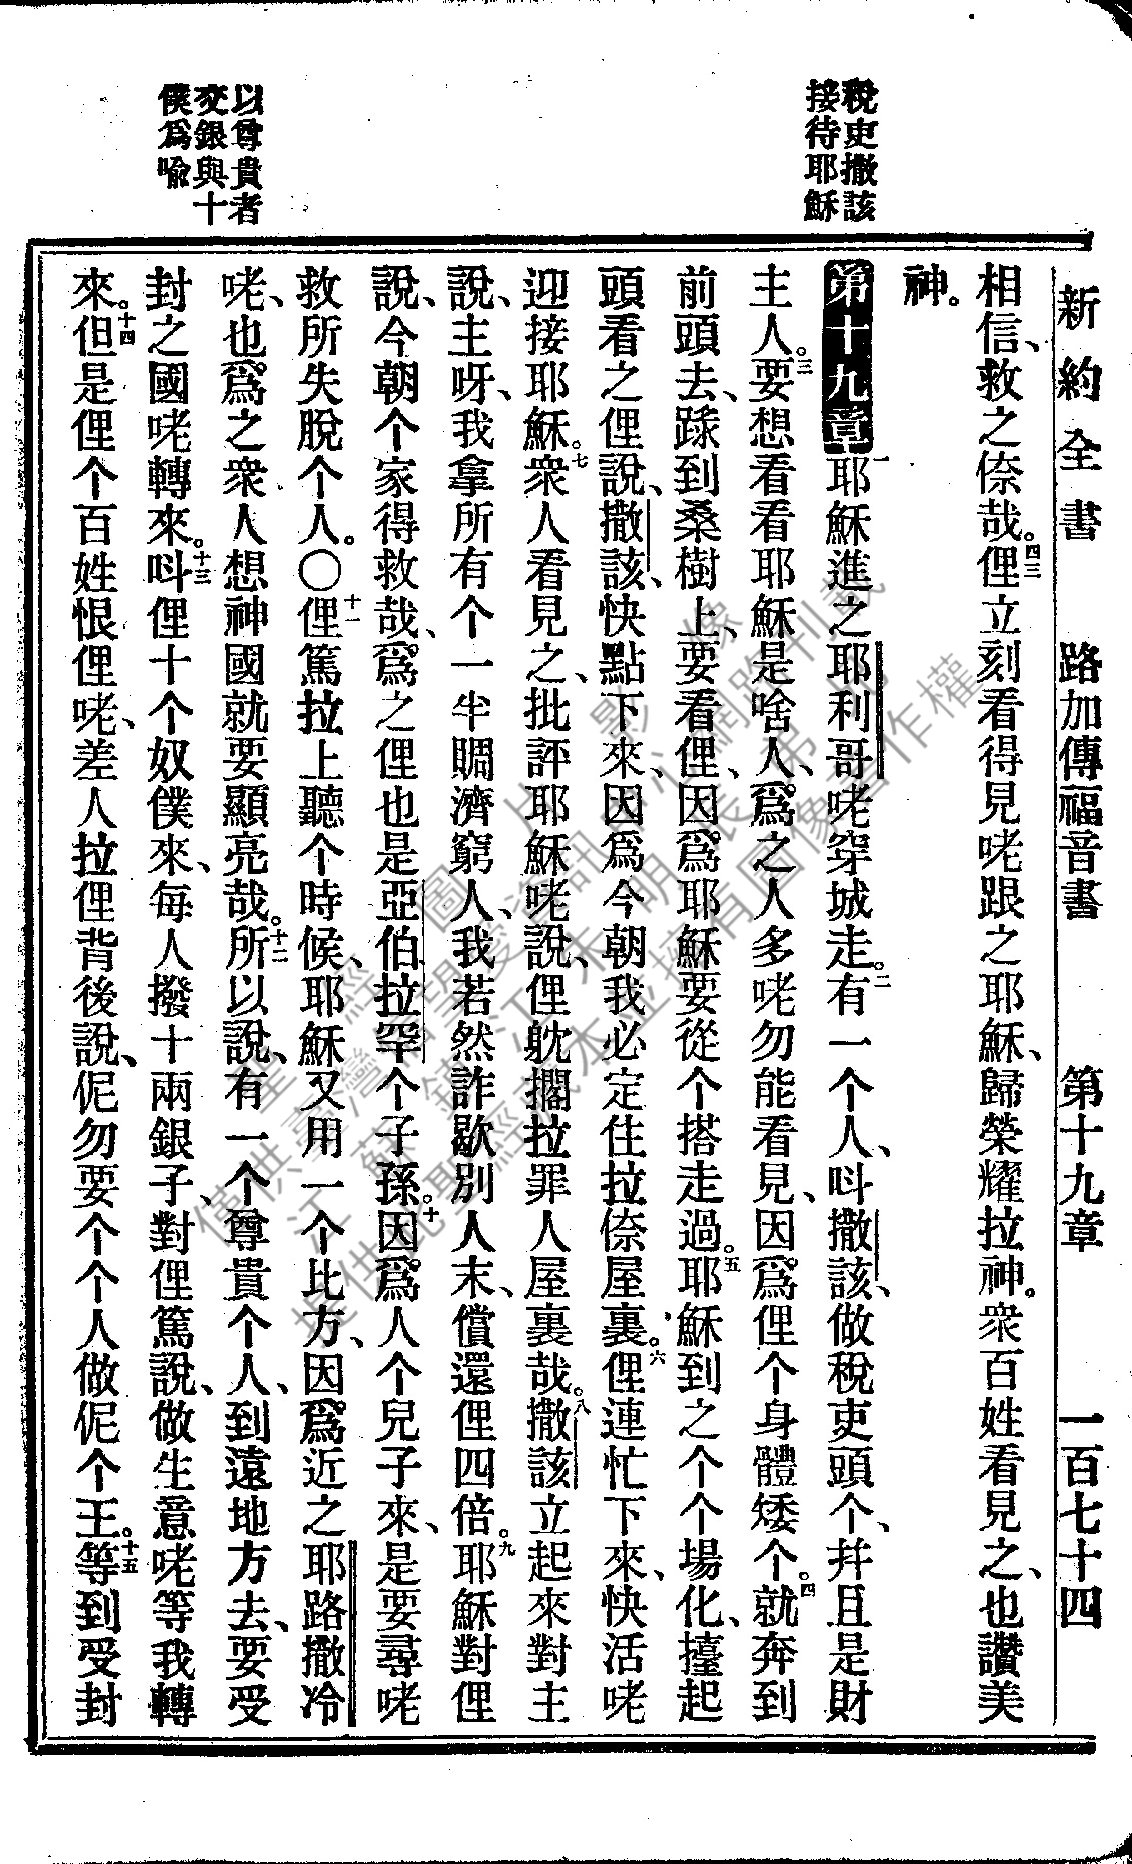 新約全書　路加傳福音書　第十九章　一百七十四
稅吏撒該
接待耶穌
以尊貴者
交銀與十
僕爲喻
相信、救之倷哉。四三俚立刻看得見咾跟之耶穌、歸榮耀拉神。衆百姓看見之、也讚美
神。
第十九章 一耶穌進之耶利哥咾穿城走。二有一个人、呌撒該、做稅吏頭个、幷且是財
主人。三要想看看耶穌是啥人、爲之人多咾勿能看見、因爲俚个身體矮个。四就奔到
前頭去、跺到桑樹上、要看俚、因爲耶穌要從个搭走過。五耶穌到之个个場化、擡起
頭看之俚說、撒該、快點下來、因爲今朝我必定住拉倷屋裏。六俚連忙下來、快活咾
迎接耶穌。七衆人看見之、批評耶穌咾說、俚躭擱拉罪人屋裏哉。八撒該立起來對主
說、主呀、我拿所有个一半賙濟窮人、我若然詐歇別人末、償還俚四倍。九耶穌對俚
說、今朝个家得救哉、爲之俚也是亞伯拉罕个子孫。十因爲人个兒子來、是要尋咾
救所失脫个人。〇十一俚篤拉上聽个時候、耶穌又用一个比方、因爲近之耶路撒冷
咾、也爲之衆人想神國就要顯亮哉。十二所以說、有一个尊貴个人、到遠地方去、要受
封之國咾轉來。十三呌俚十个奴僕來、每人撥十兩銀子、對俚篤說、做生意咾等我轉
來。十四但是俚个百姓恨俚咾、差人拉俚背後說、伲勿要个个人做伲个王。十五等到受封
聖經圖片影像
僅供臺灣信望愛資訊中心網路刊載
江蘇鎮江朱明辰弟兄
提供此聖經版本並擁有圖像著作權